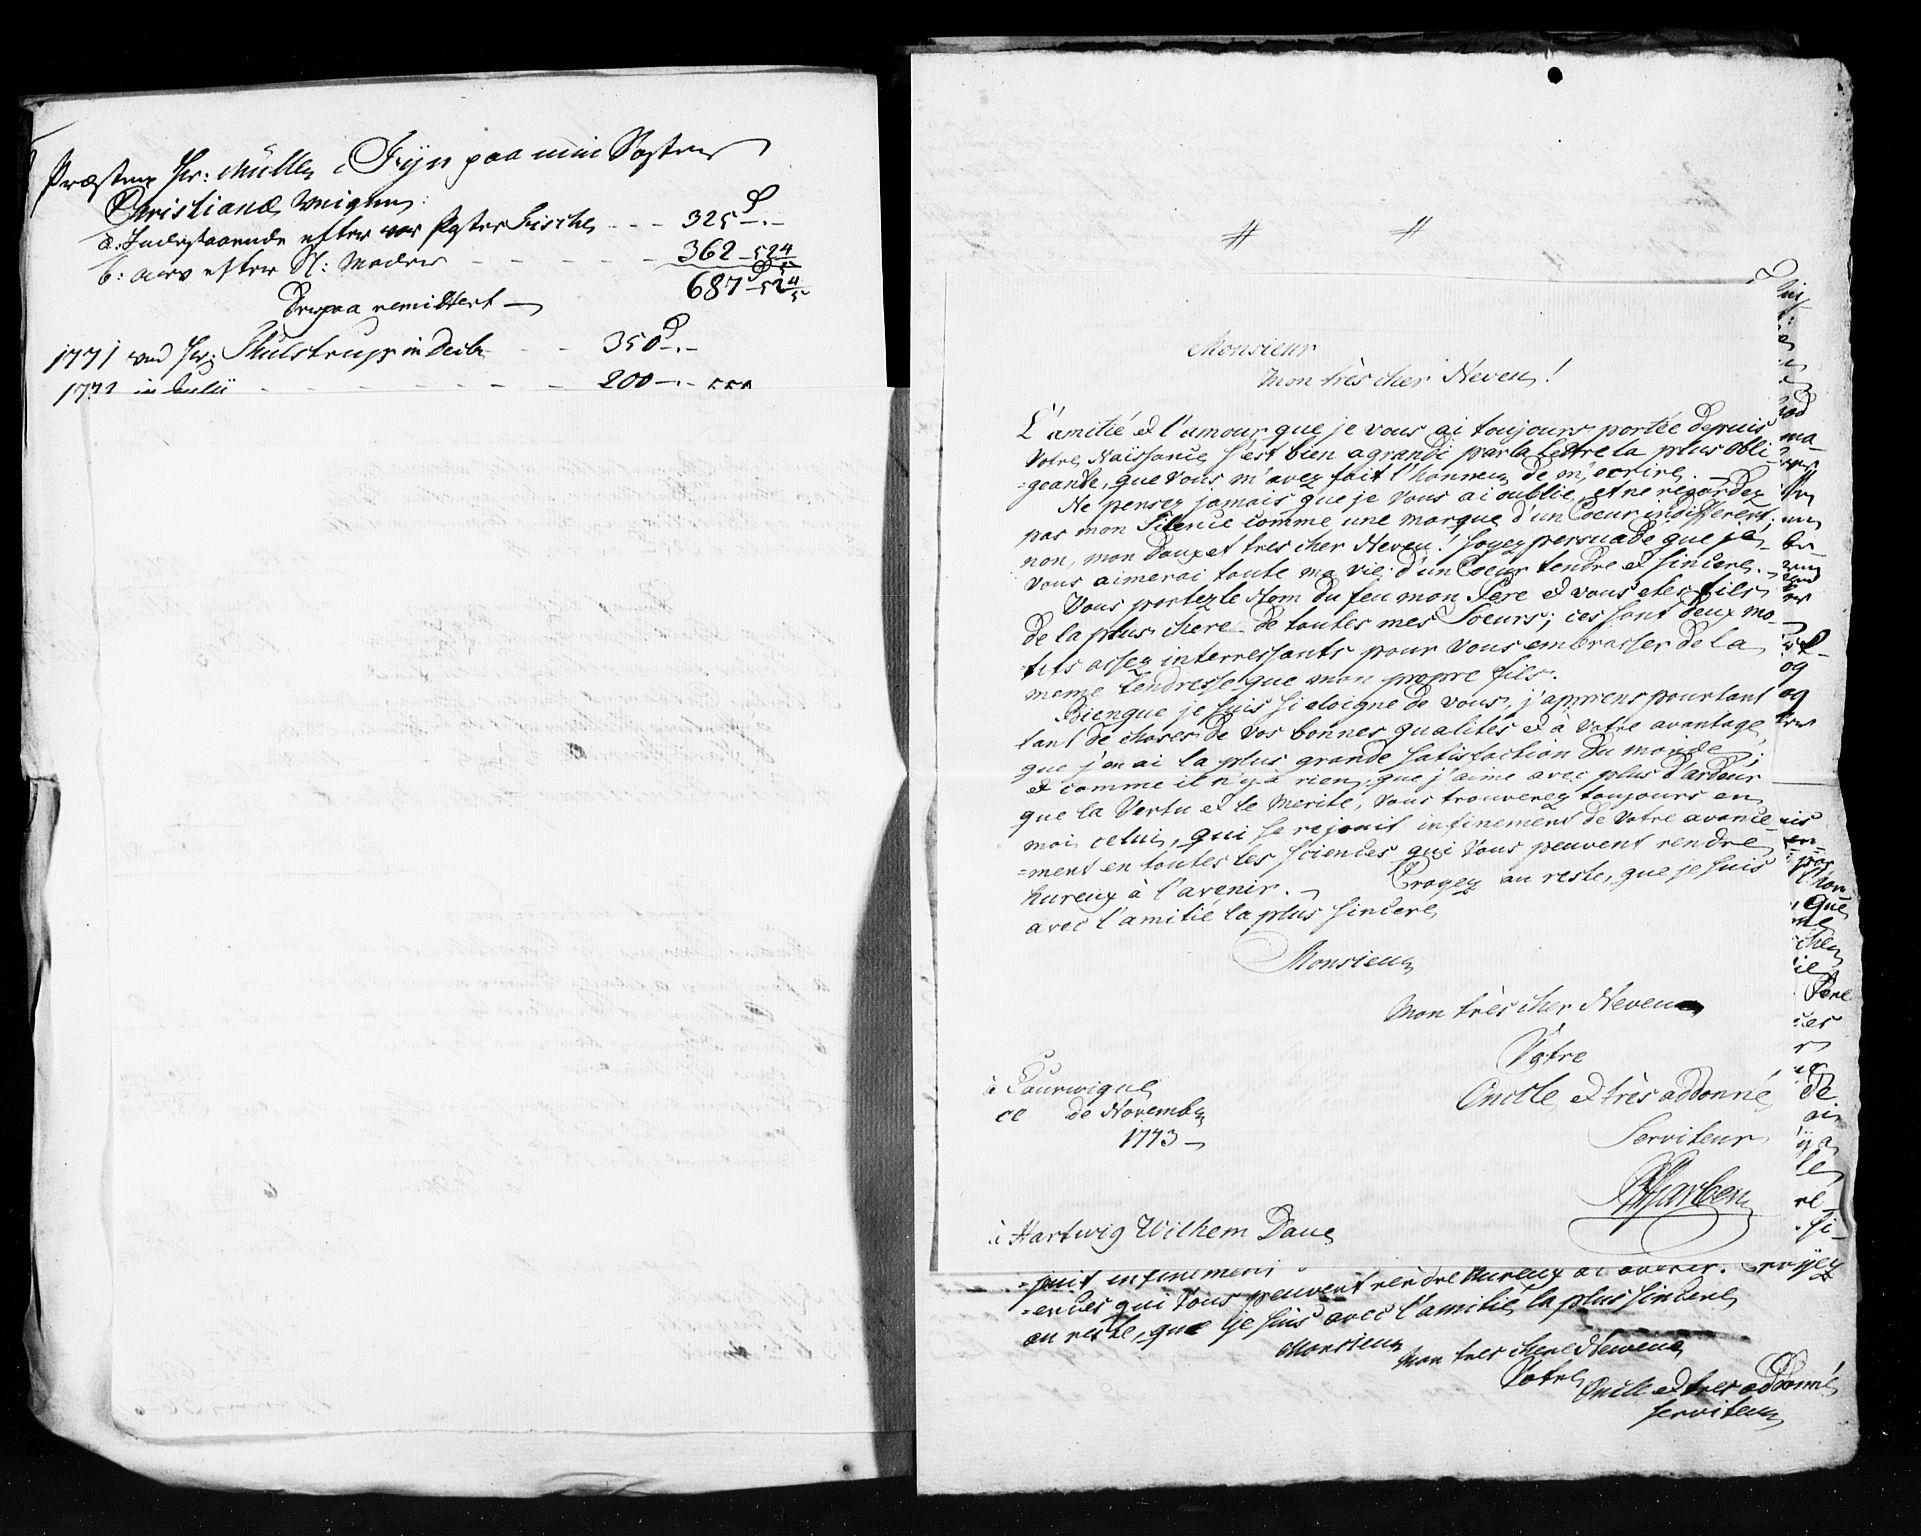 Præsten Hr: Müller i Fyn paa min Søsters
Christianæ Weigne:
a: Indestaaende efter vor Søster Lische - - - 325 -.-
b: arv efter Sl: Moder - - - - - 362 - 52 4/5
687 - 52 4/5
Derpaa remittert —
1771 ved Hr: Skulstrup in Decbr - - 350 -.-
1772 in Julii - - - - - - 200 -.- 550
# #
Monsieur
mon très cher Neveu!
L'amitié et l'amour que je vous ai toujours portée depuis
Votre Naissance s'est bien agrandi par la lettre la plus obli-
=geante, que Vous m'avez fait l'honneur de m'ecrire. —
Ne pensez jamais que je Vous ai oublié, et ne regardez
pas mon Silence comme une marque d'un Coeur indifferent;
non, mon doux et tres cher Neveu! soyez persuadé que je
vous aimerai toute ma vie d'un Coeur tendre et sincere. —
Vous portez le Nom du feu mon Pere et vous etes fils
de la plus chere de toutes mes Soeurs; ces sont deux mo-
tifs assez interressants pour Vous embrasser de la
meme tendresse que mon propre fils.
Bienque je suis si eloigne de vous, j'apprens pourtant
tant de choses de vos bonnes qualités et à Votre avantage,
que j'en ai la plus grande satisfaction du monde;
et comme il n'y a rien, que j'aime avec plus d'ardeur
que la Vertu et le merite, vous trouverez toujours en
moi celui, qui se rejouit infinement de Votre avance-
=ment en toutes les sciences qui Vous peuvent rendre
hureux à l'avenir. — Croyez au reste, que je suis
avec l'amitié la plus sincere
Monsieur
mon très cher Neveu
Votre
à Tourwigue
ce de Novembr
1773 —
Oncle et très addonné
Serviteur
à Hartwig Wilhem Daue
=jouit infinement
=ences qui Vous peuvent rendre hureux a l'avenir. Croyez
au reste, que je suis avec l'amitié la plus sincere
Monsieur
Mon tres chere Neveue
Votre
Oncle et tres addonné
serviteur